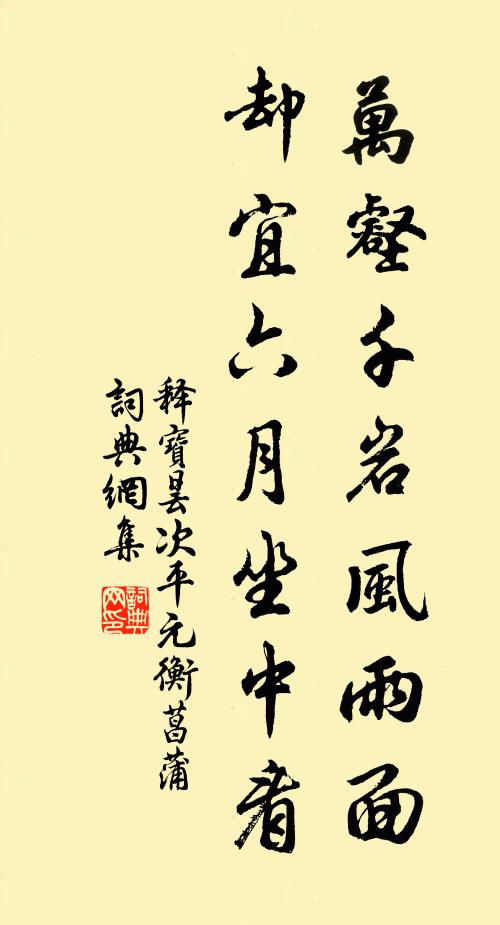 萬壑千岩風雨面
却宜六月坐中看
释寶曇次平元衡菖蒲
詞典網集
詞典网印